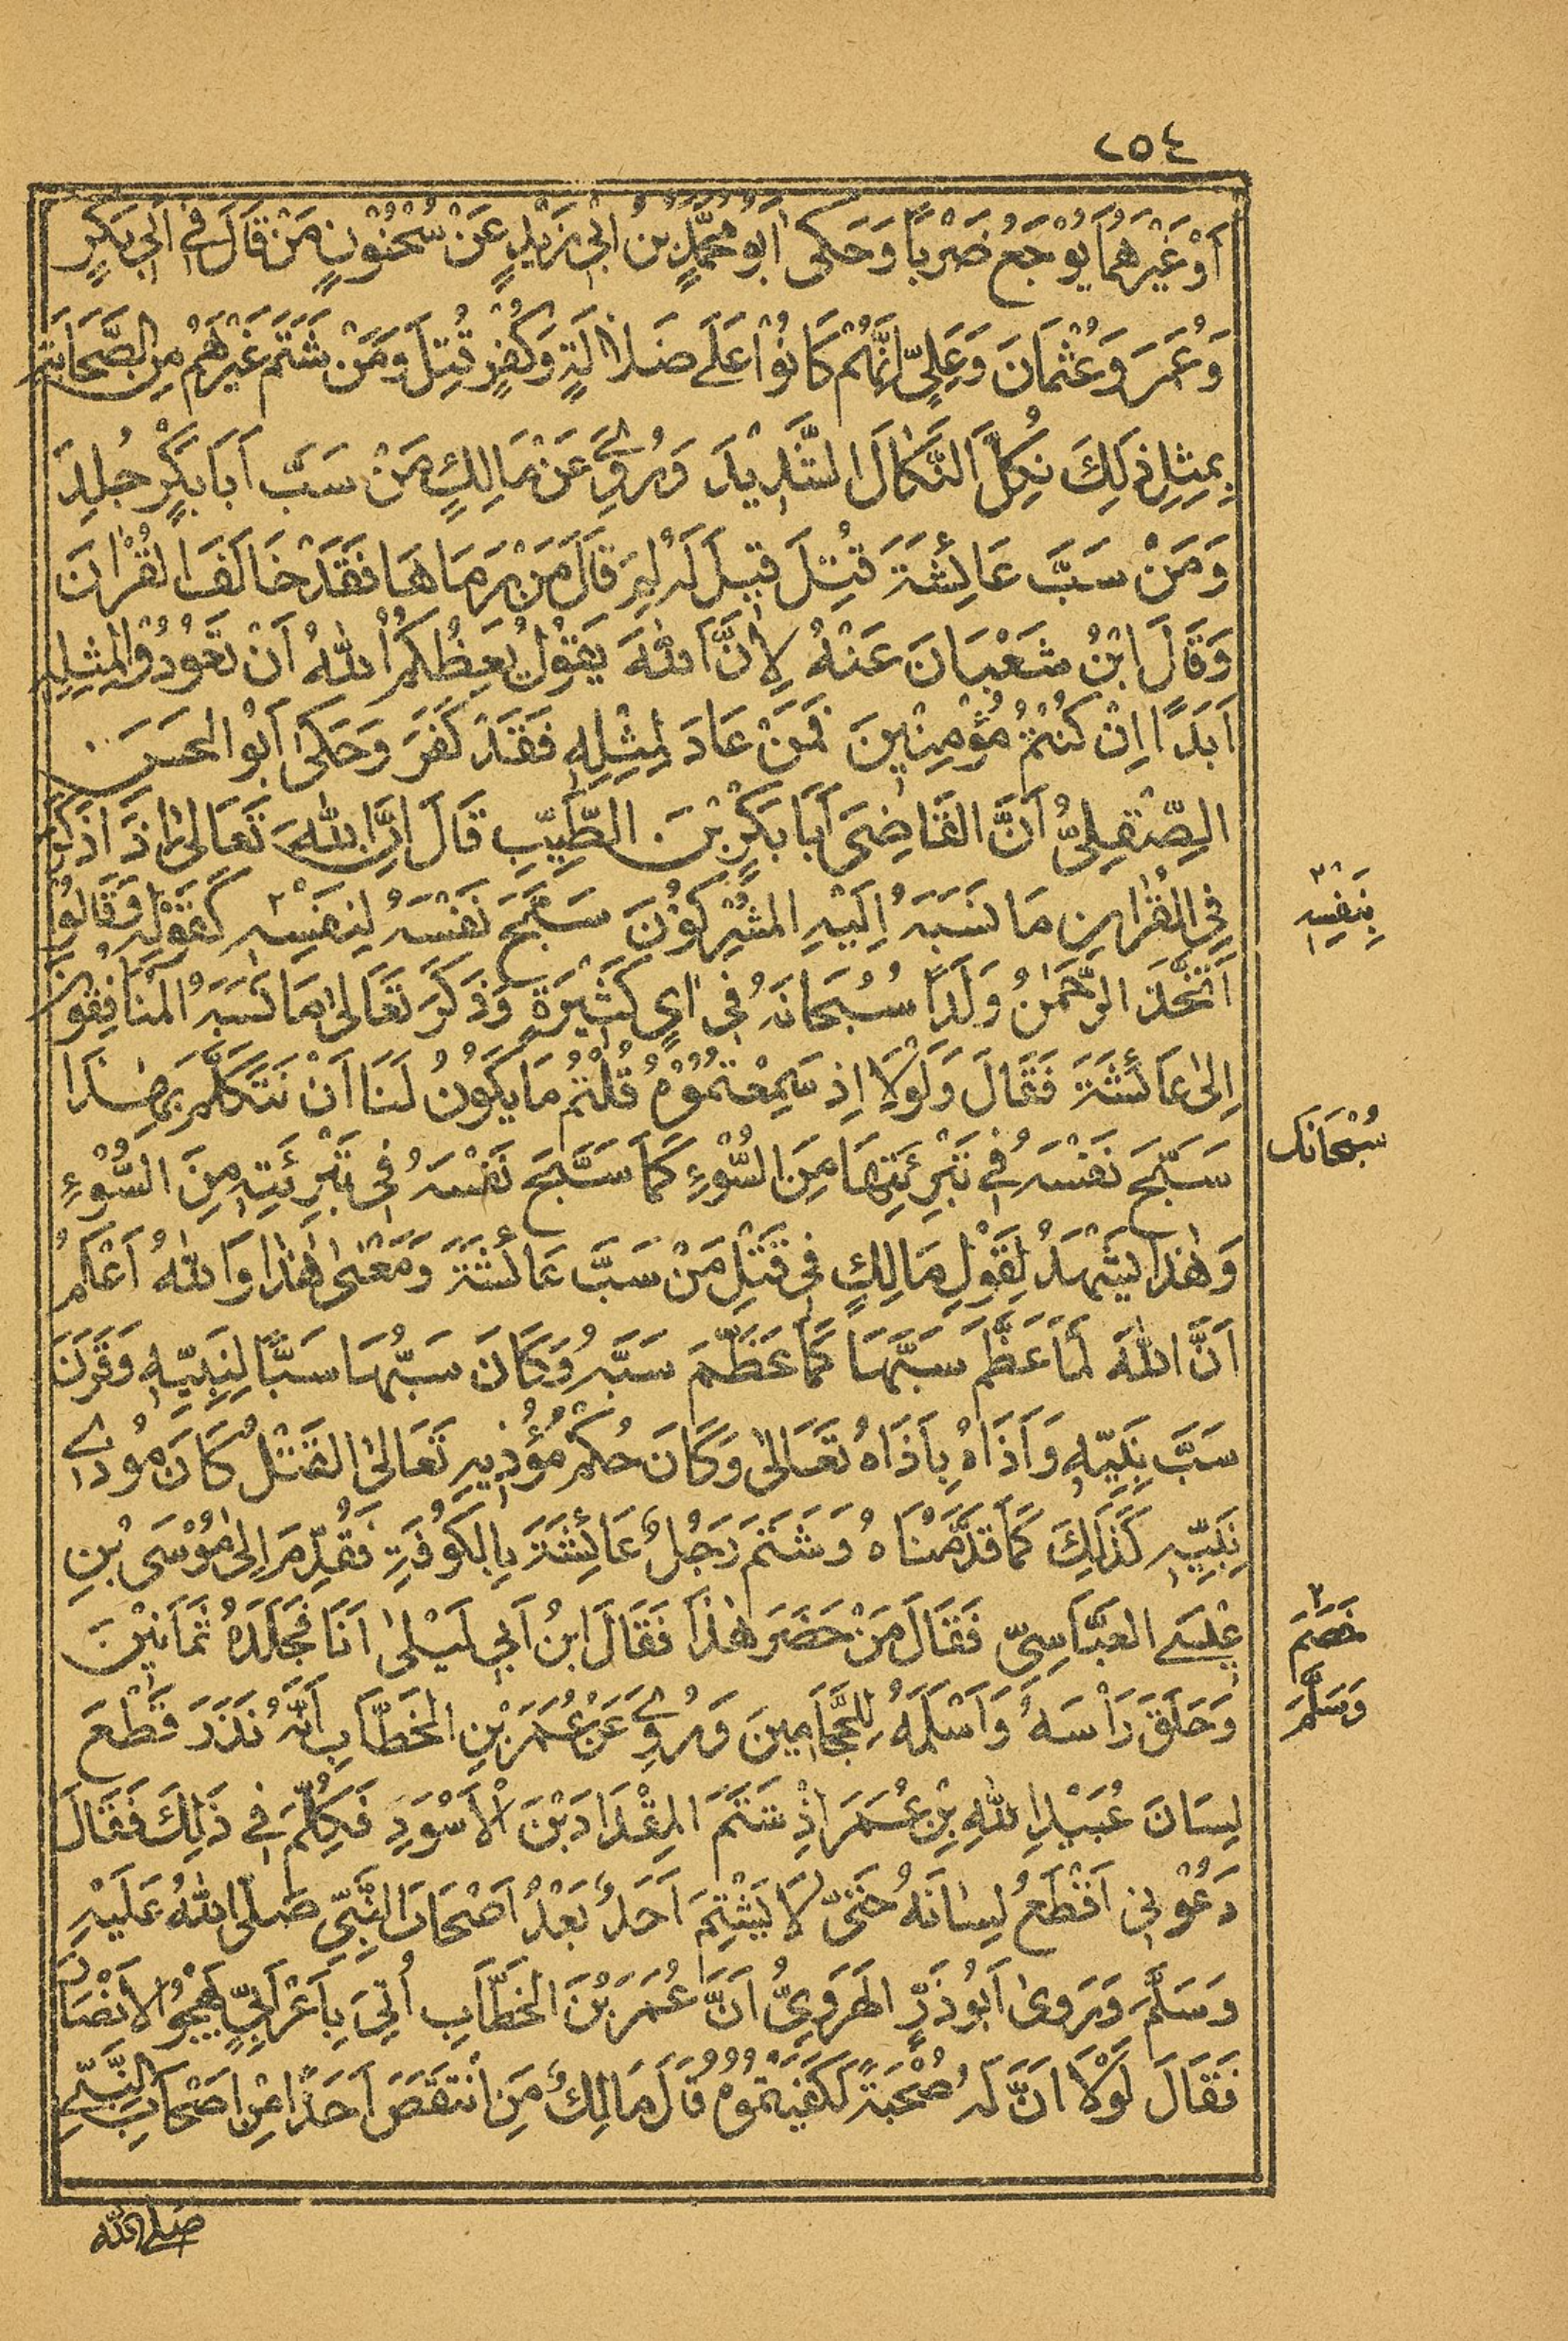 ٢٥٤
اَوْ غَيْرَهُمَا يُوْجَعُ ضَرْبًا وَحَكٰى اَبُو مُحَمَّدِ بْنُ اَبِىْ زَيْدٍ عَنْ سُحْنُوْنٍ مَنْ قَالَ فِىْ اَبِىْ بَكْرٍ
وَعُمَرَ وَعُثْمَانَ وَعَلِىٍّ اِنَّهُمْ كَانُوْا عَلٰى ضَلَالَةٍ وَكُفْرٍ قُتِلَ وَمَنْ شَتَمَ غَيْرَهُمْ مِنَ الصَّحَابَةِ
بِمِثْلِ ذٰلِكَ نُكِّلَ النَّكَالَ الشَّدِيْدَ وَرُوِىَ عَنْ مَالِكٍ مَنْ سَبَّ اَبَا بَكْرٍ جُلِدَ
وَمَنْ سَبَّ عَائِشَةَ قُتِلَ قِيْلَ لَهُ لِمَ قَالَ مَنْ رَمَاهَا فَقَدْ خَالَفَ الْقُرْاٰنَ
وَقَالَ ابْنُ شَعْبَانَ عَنْهُ لِاَنَّ اللّٰهَ يَقُوْلُ يَعِظُكُمُ اللّٰهُ اَنْ تَعُوْدُوْا لِمِثْلِهِ
اَبَدًا اِنْ كُنْتُمْ مُؤْمِنِيْنَ فَمَنْ عَادَ لِمِثْلِهِ فَقَدْ كَفَرَ وَحَكٰى اَبُو الْحَسَنِ
الصِّقِلِىُّ اَنَّ الْقَاضِىَ اَبَا بَكْرِ بْنَ الطَّيِّبِ قَالَ اِنَّ اللّٰهَ تَعَالٰى اِذَا ذَكَرَ
فِى الْقُرْاٰنِ مَا نَسَبَهُ اِلَيْهِ الْمُشْرِكُوْنَ سَبَّحَ نَفْسَهُ لِنَفْسِهِ كَقَوْلِهِ وَقَالُوا
اتَّخَذَ الرَّحْمٰنُ وَلَدًا سُبْحَانَهُ فِىْ اٰىٍ كَثِيْرَةٍ وَذَكَرَ تَعَالٰى مَا نَسَبَهُ الْمُنَافِقُوْنَ
اِلٰى عَائِشَةَ فَقَالَ وَلَوْلَا اِذْ سَمِعْتُمُوْهُ قُلْتُمْ مَا يَكُوْنُ لَنَا اَنْ نَتَكَلَّمَ بِهٰذَا
سَبَّحَ نَفْسَهُ فِىْ تَبْرِئَتِهَا مِنَ السُّوْءِ كَمَا سَبَّحَ نَفْسَهُ فِىْ تَبْرِئَتِهِ مِنَ السُّوْءِ
وَهٰذَا يَشْهَدُ لِقَوْلِ مَالِكٍ فِىْ قَتْلِ مَنْ سَبَّ عَائِشَةَ وَمَعْنٰى هٰذَا وَاللّٰهُ اَعْلَمُ
اَنَّ اللّٰهَ لَمَّا عَظَّمَ سَبَّهَا كَمَا عَظَّمَ سَبَّهُ وَكَانَ سَبُّهَا سَبًّا لِنَبِيِّهِ وَقَرَنَ
سَبَّ نَبِيِّهِ وَاَذَاهُ بِاَذَاهُ تَعَالٰى وَكَانَ حُكْمُ مُؤْذِيْهِ تَعَالٰى الْقَتْلُ كَانَ مُؤْذِى
نَبِيِّهِ كَذٰلِكَ كَمَا قَدَّمْنَاهُ وَشَتَمَ رَجُلٌ عَائِشَةَ بِالْكُوْفَةِ فَقُدِّمَ اِلٰى مُوْسَى بْنِ
عِيْسَى الْعَبَّاسِىِّ فَقَالَ مَنْ حَضَرَ هٰذَا فَقَالَ ابْنُ اَبِىْ لَيْلٰى اَنَا فَجَلَدَهُ ثَمَانِيْنَ
وَحَلَقَ رَاْسَهُ وَاَسْلَمَهُ لِلْحَجَّامِيْنَ وَرُوِىَ عَنْ عُمَرَ بْنِ الْخَطَّابِ اَنَّهُ نَذَرَ قَطْعَ
لِسَانَ عُبَيْدِ اللّٰهِ بْنِ عُمَرَ اِذْ شَتَمَ الْمِقْدَادَ بْنَ الْاَسْوَدِ فَكُلِّمَ فِىْ ذٰلِكَ فَقَالَ
دَعُوْنِىْ اَقْطَعُ لِسَانَهُ حَتّٰى لَا يَشْتِمَ اَحَدٌ بَعْدُ اَصْحَابَ النَّبِىِّ صَلَّى اللّٰهُ عَلَيْهِ
وَسَلَّمَ وَرَوٰى اَبُو ذَرٍّ الْهَرَوِىُّ اَنَّ عُمَرَ بْنَ الْخَطَّابِ اُتِىَ بِاَعْرَابِىٍّ يَهْجُو الْاَنْصَارَ
فَقَالَ لَوْلَا اَنَّ لَهُ صُحْبَةً لَكَفَيْتُمُوْهُ قَالَ مَالِكٌ مَنِ انْتَقَصَ اَحَدًا مِنْ اَصْحَابِ النَّبِىِّ
بِنَفْسِهِ
سُبْحَانَكَ
خَصَمَ
وَسَلَّمَ
صلى الله